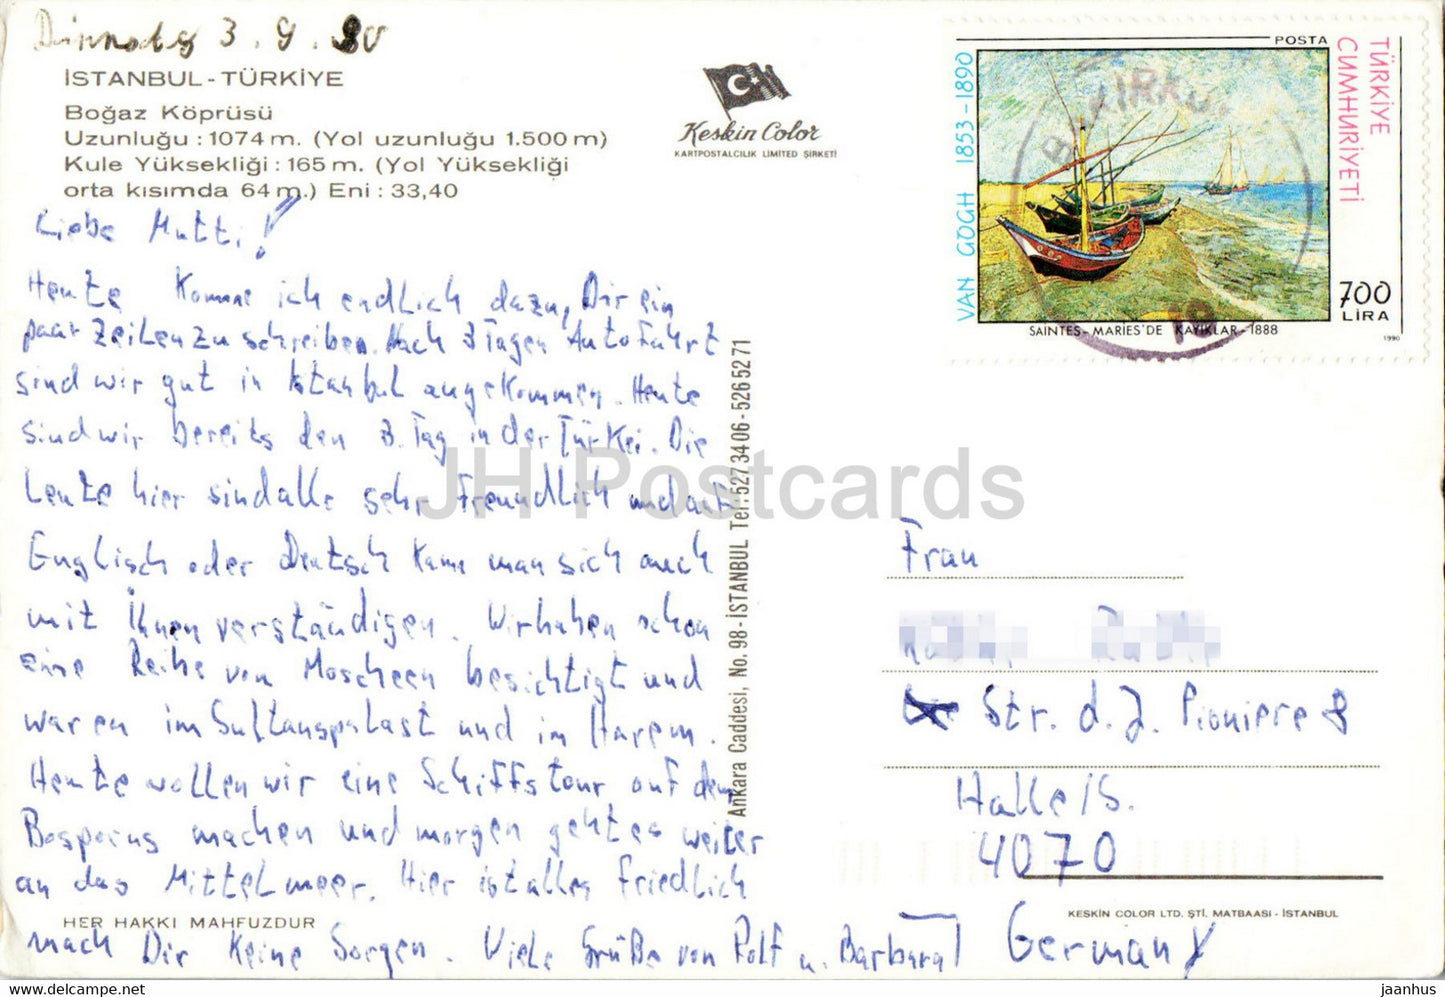 3.9.90
İSTANBUL - TÜRKİYE
Boğaz Köprüsü
Uzunluğu : 1074 m. (Yol uzunluğu 1.500 m)
Kule Yüksekliği : 165 m. (Yol Yüksekliği
orta kısımda 64 m.) Eni : 33,40
Liebe Mutti!
Heute komme ich endlich dazu, Dir ein
paar Zeilen zu schreiben. Nach 3 Tagen Autofahrt
sind wir gut in Istanbul angekommen. Heute
sind wir bereits den 3. Tag in der Türkei. Die
Leute hier sind alle sehr freundlich und auf
Englisch oder Deutsch kann man sich auch
mit Ihnen verständigen. Wir haben schon
eine Reihe von Moscheen besichtigt und
waren im Sultanspalast und im Harem.
Heute wollen wir eine Schiffstour auf dem
Bosporus machen und morgen geht es weiter
an das Mittelmeer. Hier ist alles friedlich
mach Dir keine Sorgen. Viele Grüße von Rolf u. Barbara
HER HAKKI MAHFUZDUR
Keskin Color
KARTPOSTALCILIK LIMITED ŞİRKETİ
Ankara Caddesi, No. 98 - İSTANBUL Tel: 527 34 06 - 526 52 71
POSTA
TÜRKİYE
CUMHURİYETİ
VAN GOGH 1853-1890
700
LİRA
SAINTES-MARIES'DE KAYIKLAR-1888
1990
BAKIRKÖY
19
Frau
Str. d. J. Pioniere 8
Halle/S.
4070
Germany
KESKIN COLOR LTD. ŞTİ. MATBAASI - İSTANBUL
JH Postcards
https://www.delcampe.net
jaanhus